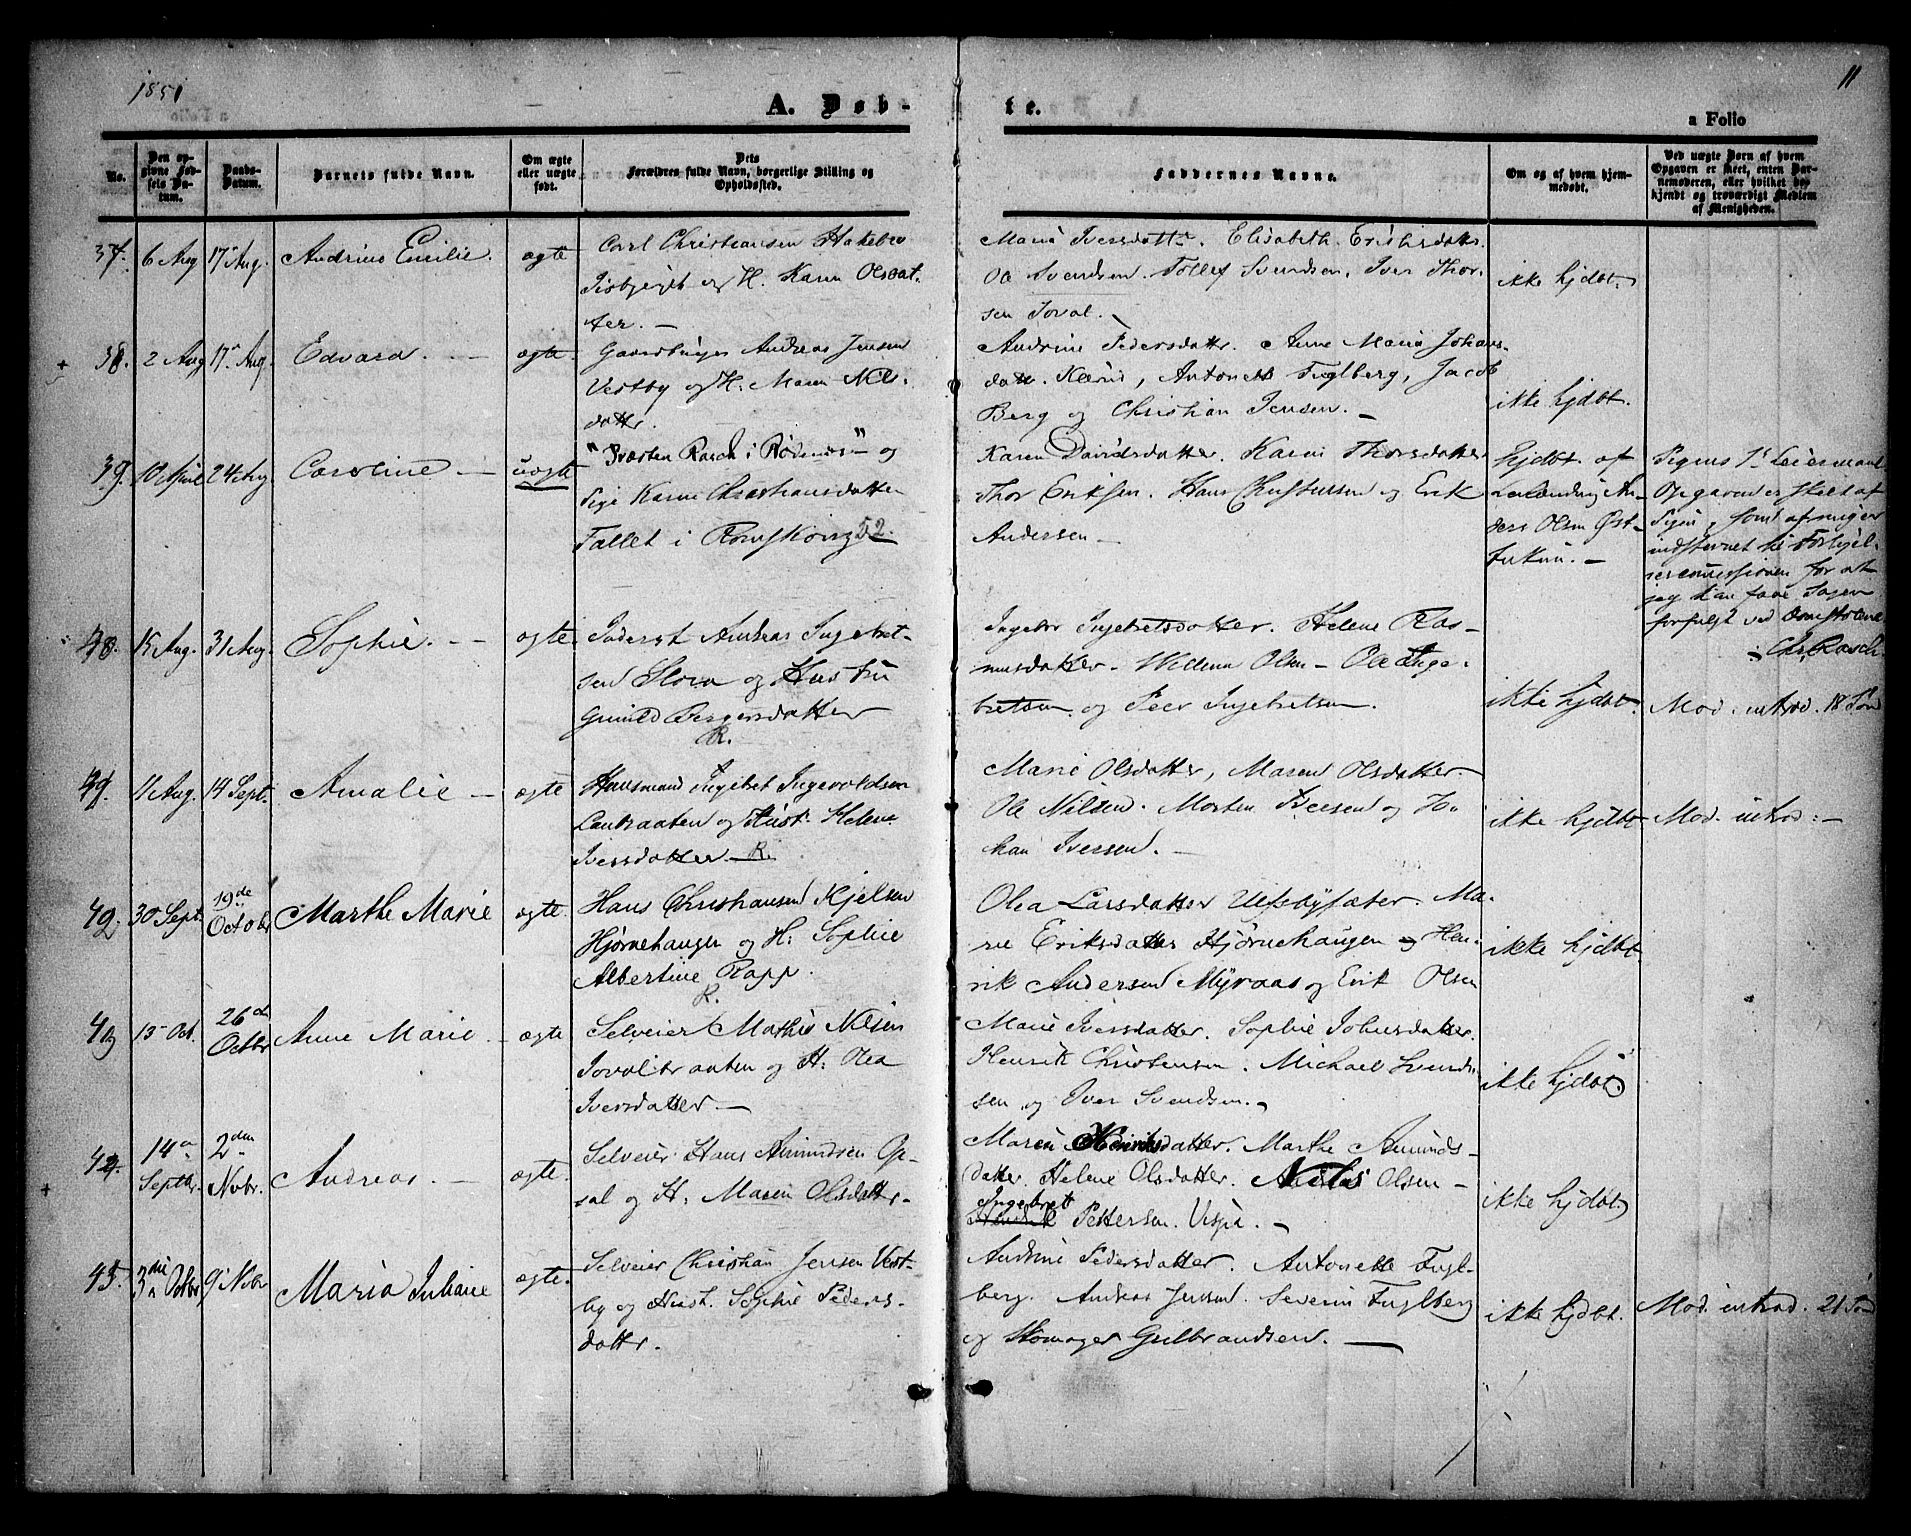 1851
11
A. Døb-
te.
a Folio
No.
Den op-
givne Fød-
sels Da-
tum.
Daabs-
Datum.
Barnets fulde Navn.
Om ægte
eller uægte
født.
Dets
Forældres fulde Navn, borgerlige Stilling og
Opholdssted.
Faddernes Navne.
Om og af hvem hjem-
medøbt.
Ved uægte Børn af hvem
Opgaven er skeet, enten Bar-
nemoderen, eller hvilket be-
kjendt og troværdigt Medlem
af Menigheden.
37. 6 Aug 17 Aug. Andrine Emilie. ægte
Carl Christiansen
og H. Karen Olsdat-
ter. —
Marie Iversdatter. Elisabeth Eriksdatter.
Ole Svendsen. Tollef Svendsen. Iver Thor-
sen Joval.
ikke hjdbt.
38. 2 Aug 17 Aug. Edvard. — ægte
Gaardbruger Andreas Jensen
Vestby og H. Maren Nils-
datter.
Andrine Pedersdatter. Anne Marie Johans-
datter. Antonette Fuglberg, Jacob
Berg og Christian Jensen. —
ikke hjdbt.
39. 10 April 24 Aug Caroline — uægte
"Præsten Rasch i Rødenes" — og
Pige Karen Christiansdatter
Fallet i Rømskoug 52.
Karen Davidsdatter. Karen Thorsdatter
Thor Eriksen. Hans Christensen og Erik
Andersen —
hjdbt. af
An-
ders Olsen Øst-
Pigens 1ste Leiermaal
Opgaven er skeet af
Pigen, som
indstevnet til Forligel-
sescommissionen for at
jeg kan faae Sagen
forfulgt ved Domstolene
Chr. Rasch
40. 15 Aug. 31 Aug Sophie. — ægte
Inderst Andreas Ingebret-
sen Slora og Hustru
Gunild Bergersdatter
R.
Ingebor Ingebretsdatter. Helene Ras-
musdatter. Willum Olsen — Ole Inge-
bretsen. og Peer Ingebretsen.
ikke hjdbt.
Mod. introd. 18 Sønd
11 Aug. 14 Sept. Amalie — ægte
Huusmand Ingebret Ingevoldsen
og Hust. Helene
Iversdatter — R.
Marie Olsdatter, Maren Olsdatter.
Ole Nilsen. Morten Iversen og Jo-
han Iversen. —
ikke hjdbt
Mod. introd: —
42 30 Sept. 19de
Octobr Marthe Marie ægte.
Hans Christiansen Kjelsen
Hjørnehaugen og H: Sophie
Albertine Rapp.
R.
Olea Larsdatter Ma-
rie Eriksdatter Hjørnehaugen og Hen-
rik Andersen Myraas og Erik Olsen
ikke hjdbt.
43 13 Oct. 26de
Octbr Anne Marie — ægte
Selveier Mathis Nilsen
Jovaltraaten og H. Olea
Iversdatter —
Marie Iversdatter. Sophie Johnsdatter.
Henrik Christensen. Michael Svend-
sen og Iver Svendsen. —
ikke hjdbt.
14de
Septbr. 2den
Nvbr. Andreas. — ægte.
Selveier Hans Amundsen Op-
sal og H. Maren Olsdatter
Maren Henriksdatter. Marthe Amunds-
datter. Helene Olsdatter. Nils Olsen —
Ingebret
Pettersen. —
ikke hjdbt.
45. 3die Octbr 9 Nvbr Maria Juliane ægte.
Selveier Christian Jensen Vest-
by og Hust. Sophie Peders-
datter.
Andrine Pedersdatter. Antonette Fugl-
berg. Andreas Jensen. Severin Fuglberg
og Skomager Gulbrandsen. —
ikke hjdbt.
Mod. introd. 21 Sønd